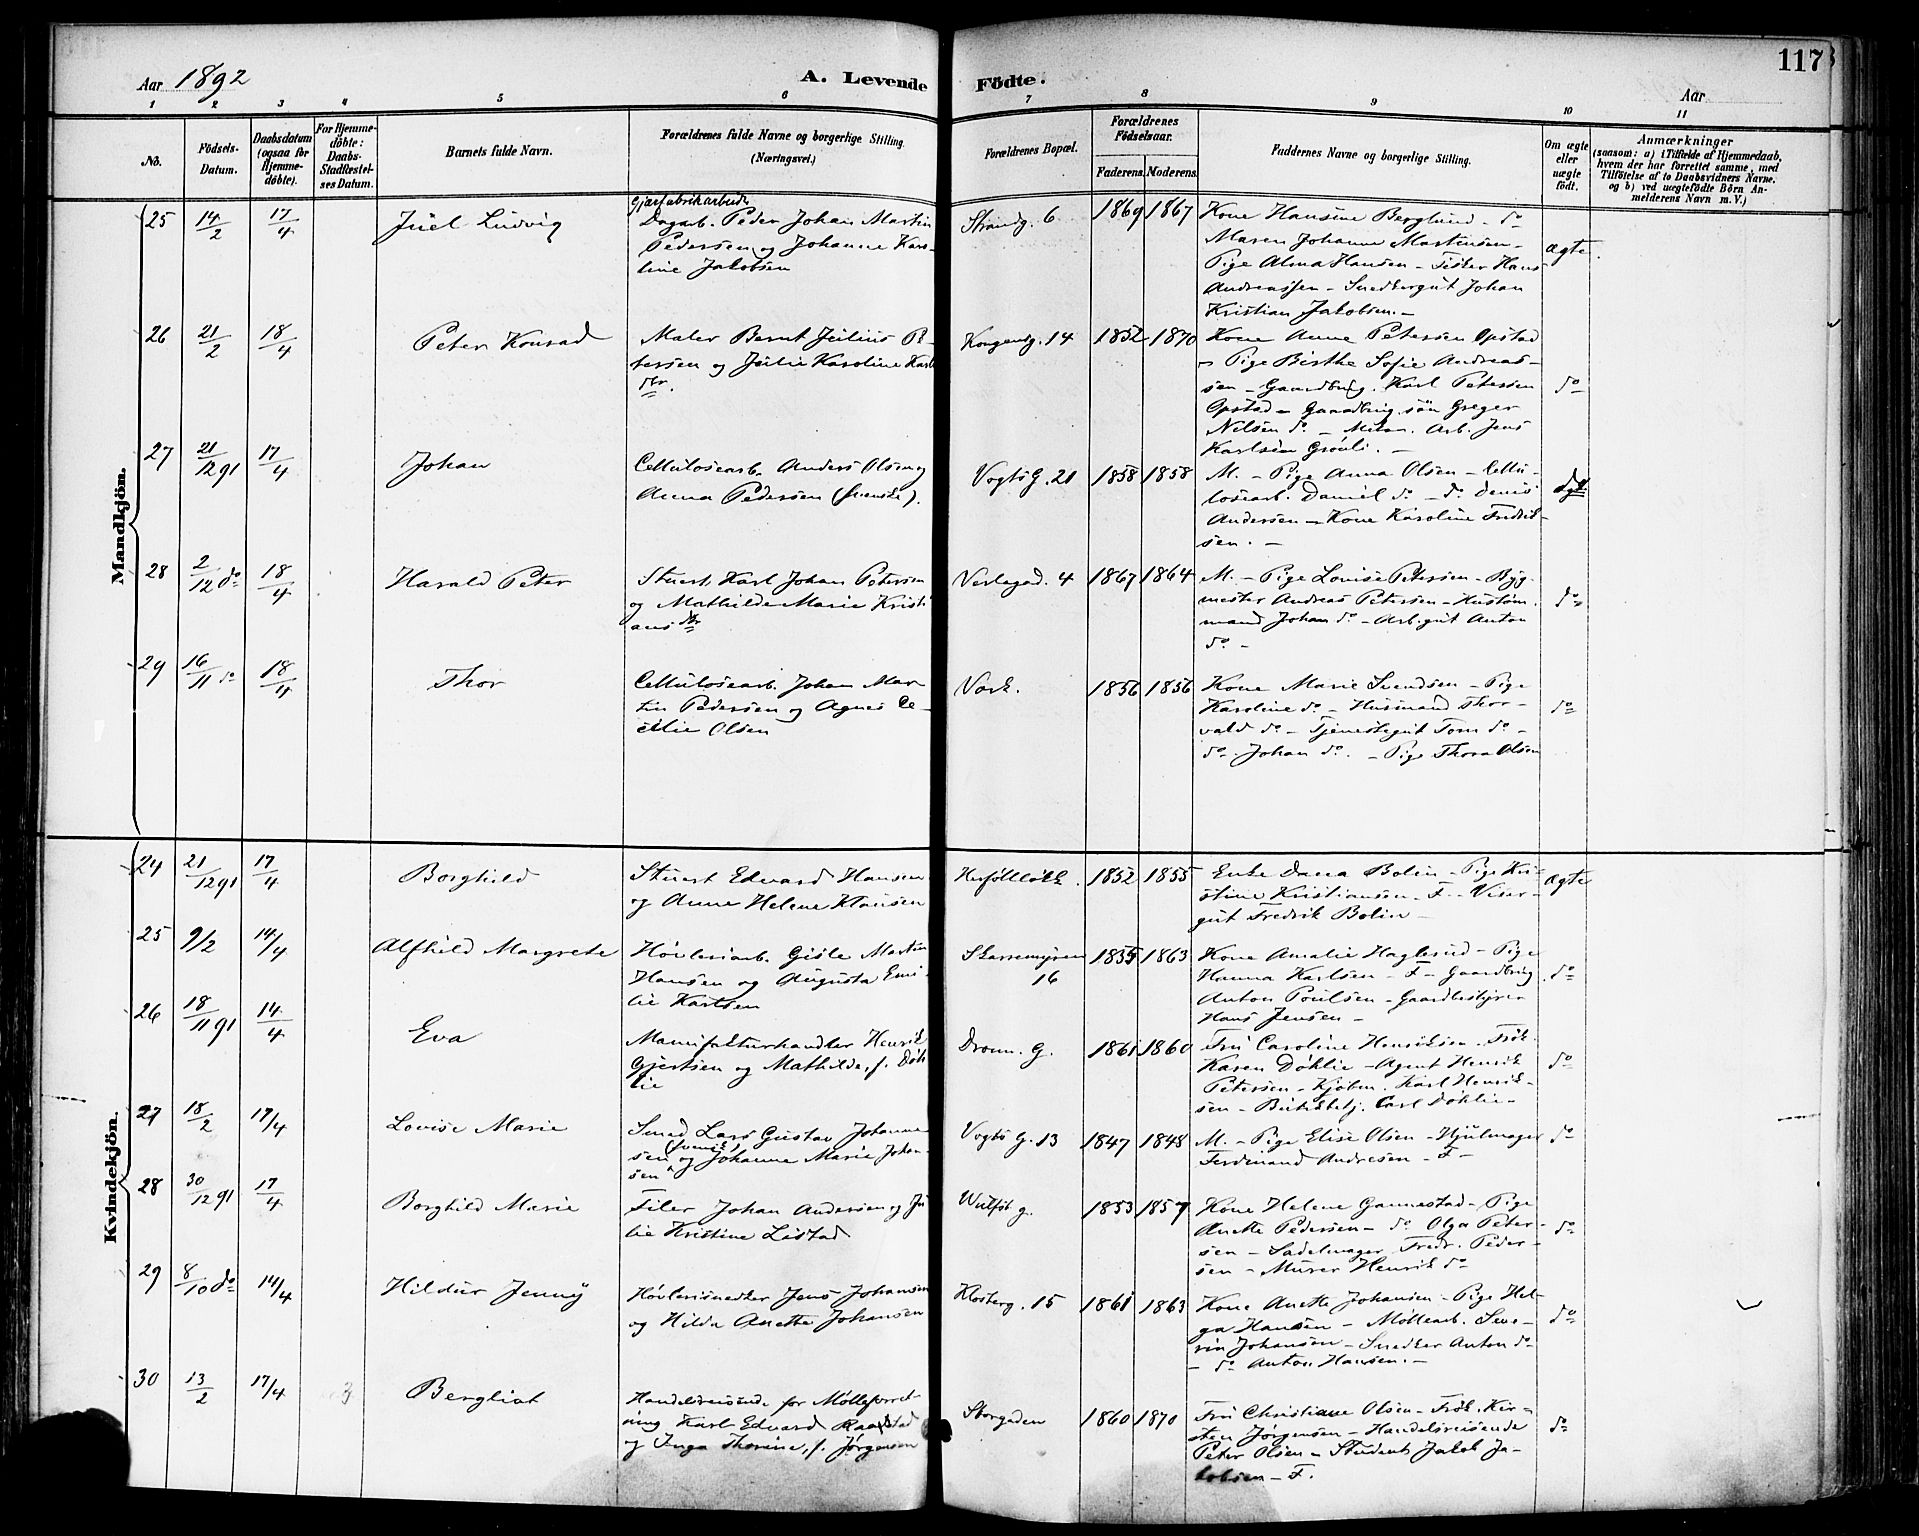 Aar 1892
A. Levende Födte.
117
Aar
1 2 3 4 5 6 7 8 9 10 11
No.
Födsels-Datum.
Daabsdatum (ogsaa for Hjemme-døbte).
For Hjemme-döbte: Daabs-Stadfæstel-ses Datum.
Barnets fulde Navn.
Forældrenes fulde Navne og borgerlige Stilling. (Næringsvei.)
Forældrenes Bopæl.
Forældrenes Födselsaar.
Faderens. Moderens.
Faddernes Navne og borgerlige Stilling.
Om ægte eller uægte födt.
Anmærkninger
(saasom: a) i Tilfælde af Hjemmedaab, hvem der har forrettet samme, med Tilföielse af to Daabsvidners Navne, og b) ved uægtefödte Börn An-melderens Navn m. V.)
Mandkjön.
25 14/2 17/4 Juel Ludvig
Gjærfabrikarbeide
Dagarb. Peder Johan Martin
Pedersen og Johanne Karo-
line Jakobsen
Strandg. 6 1869 1867
Kone Hansine Berglund - do
Maren Johanne Martinsen -
Pige Alma Hansen - Fisker Hans
Andreassen - Snedkergut Johan
Kristian Jakobsen. -
ægte.
26 21/2 18/4 Peter Konrad
Maler Bernt Julius Pe-
tersen og Julie Karoline Karls
dtr.
Kongensg. 14 1852 1870
Kone Anne Petersen Opstad
- Pige Birthe Sofie Andreas-
sen - Gaardbrug. Karl Petersen
Opstad - Gaardbrug. søn Greger
Nielsen do - Arb. Jens
Karlsen -
do
27 21/12 91 17/4 Johan
Cellulosearb. Anders Olsen og
Anna Pedersen (Svenske).
Vogts G. 21 1858 1858
M. - Pige Anna Olsen - Cellu-
losearb. Daniel do - do Denis
Andersen - Kone Karoline Fredrik-
sen. -
28 2/12 do 18/4 Harald Peter
Stuert Karl Johan Petersen
og Mathilde Marie Kristi
ans dtr
Verlegad. 4 1867 1864
M. - Pige Lovise Petersen - Byg
mester Andreas Petersen - Hustøm.
mand Johan do - Arb. gut Anton
do -
do
29 16/11 do 18/4 Thor
Cellulosearb. Johan Mar-
tin Pedersen og Agnes Ce-
cilie Olsen
Vark. 1856 1856
Kone Marie Svendsen - Pige
Karoline do - Husmand Thor-
vald do - Tjenestegut Tom do -
do Johan do. - Pige Thora Olsen
do
Kvindekjön.
24 21/12 91 17/4 Borghild
Stuert Edvard Hansen
og Anne Helene Klausen
1852 1855
Enke Dana Bolin - Pige Kri-
stine Kristiansen - F. - Viser-
gut Fredrik Bolin -
ægte
25 9/2 14/4 Alfhild Margrete
Høvleriarb. Gisle Martin
Hansen og Augusta Emi-
lie Karlsen
Skarremyren
16
1835 1863
Kone Amalie Haglund - Pige
Hanna Karlsen - F - Gaardbrug
Anton Poulsen - Gaardbestyrer
Hans Jensen -
do
26 18/11 91 14/4 Eva
Manufakturhandler Henrik
Gjertsen og Mathilde, f. Døh
lie
Dronn. G. 1861 1860
Fru Caroline Henriksen - Frøk.
Karen Døhlie - Agent Henrik
Petersen - Kjøbm. Karl Henrik-
sen - Butikbetj. Carl Døhlie -
do
27 18/2 17/4 Lovise Marie
Smed Lars Gustav Johanne
sen (svensk) og Johanne Marie Johan-
sen
Vogts G. 13 1847 1848
M. - Pige Elise Olsen - Hjulmager
Ferdinand Andresen - F -
do
28 30/12 91 17/4 Borghild Marie
Filer Johan Andersen og Ju
lie Kristine Listad
g. 1853 1857
Kone Helene Gannestad - Pige
Anette Pedersen - do Olga Peter-
sen - Sadelmager Fredr. Peder-
sen - Murer Henrik do
do
29 8/10 do 14/4 Hildur Jenny
Høvlerisnedker Jens Johansen
og Hilda Anette Johansen
Klosterg. 15 1861 1863
Kone Anette Johansen - Pige Hel-
ga Hansen - Møllearb. Seve-
rin Johansen - Snedker Anton do
- do Anton Hansen. -
do
30 13/2 17/4 3 Bergliot
Handelsreisende for Mølleforret-
ning Karl Edvard Raastad
og Inga Thorine, f. Jørgensen
Storgaden 1860 1870
Fru Christiane Olsen - Frøk. Kir-
sten Jørgensen - Handelsreisende
Peter Olsen - Student Jakob Ja-
kobsen - F.
do